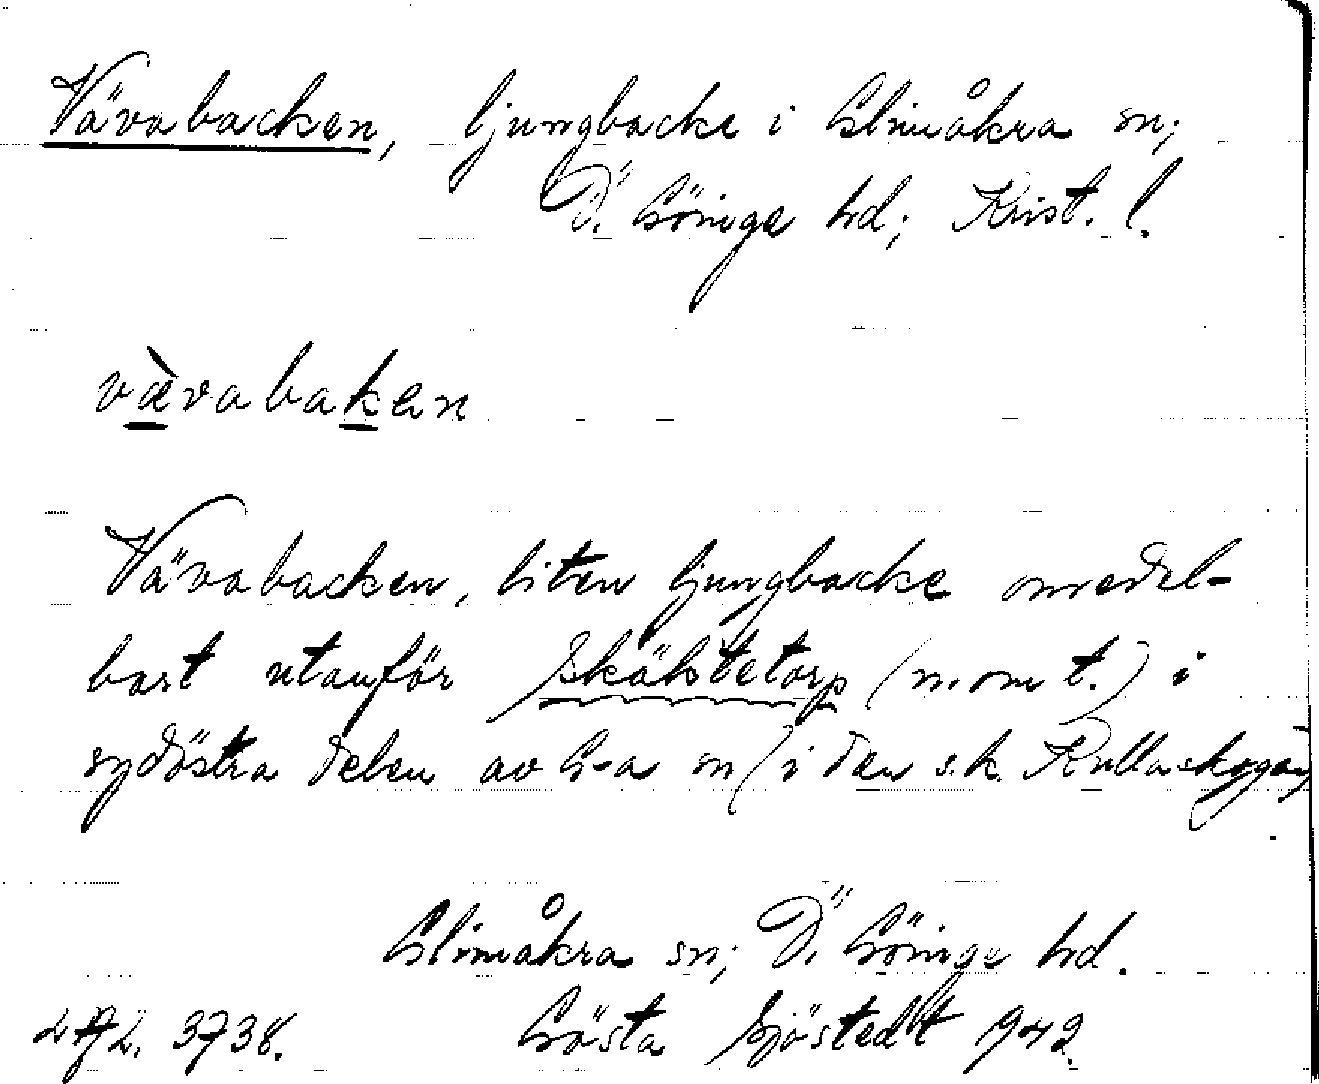 Vävabacken, ljungbacke i Glimåkra sn;
Ö. Göinge hd; Krist. l.
vævabaken
Vävabacken, liten ljungbacke omedel-
bart utanför Skäkstetorp (n. om t.) i
sydöstra delen av G-a sn (i den s.k. Kullaskogen)
.
Glimåkra sn; Ö. Göinge hd.
3738. Gösta Sjöstedt 1942.